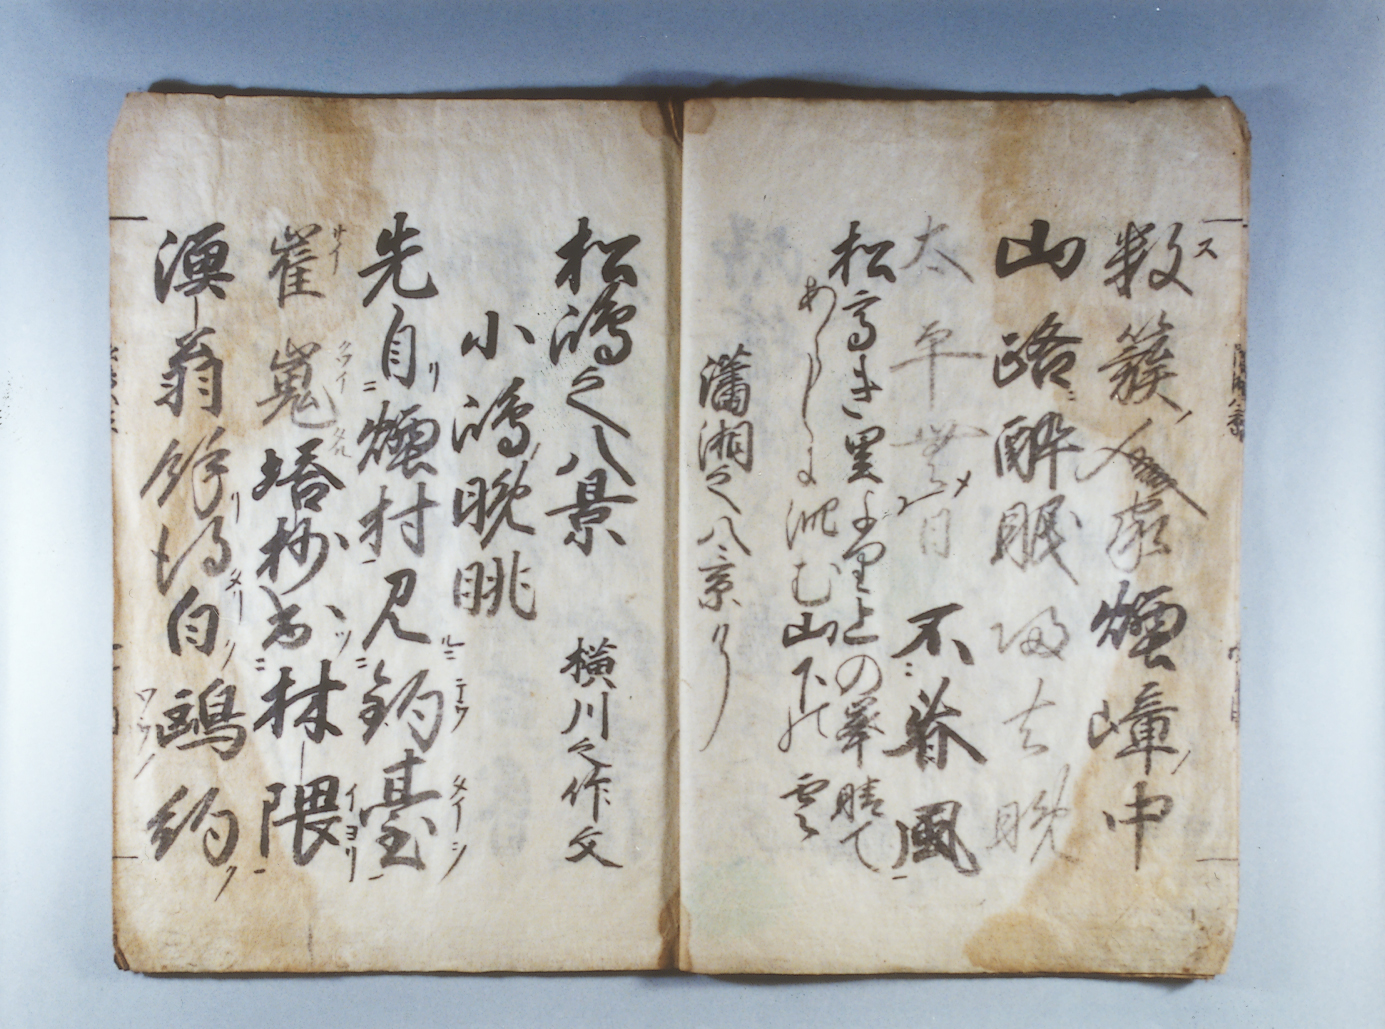 数簇人家煙嶂中
山路酔眠帰去晩
太平無日不春風
松高き里より上の峯晴て
あらしに沈む山下の雲
瀟湘之八景
松嶋之八景
横川之作文
小嶋晩眺
先自煙村見釣臺
崔嵬塔杪出林隈
漁翁馴得白鴎約